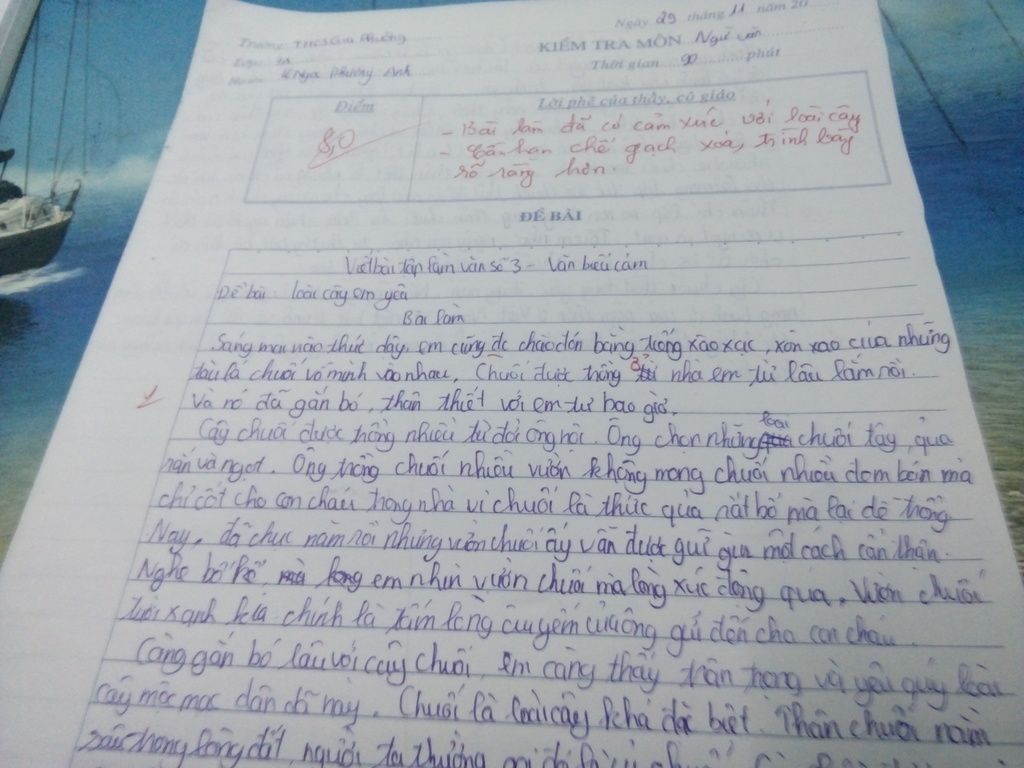 Ngày 29 tháng 11 năm 20
Trường THCS
KIỂM TRA MÔN Ngữ văn
Thời gian 90 phút
Phương Anh
Điểm
Lời phê của thầy, cô giáo
8,0
- Bài làm đã có cảm xúc với loài cây
- Cần hạn chế gạch xoá, trình bày
rõ ràng hơn.
ĐỀ BÀI
Viết bài tập làm văn số 3 - Văn biểu cảm
Đề bài loài cây em yêu
Bài làm
Sáng mai nào thức dậy, em cũng đc chào đón bằng tiếng xào xạc, xôn xao của những
tàu lá chuối vỗ mình vào nhau. Chuối được trồng ở nhà em từ lâu lắm rồi.
Và nó đã gắn bó, thân thiết với em từ bao giờ.
Cây chuối được trồng nhiều từ đời ông nội. Ông chọn những loại chuối tây, quả
mặn và ngọt. Ông trồng chuối nhiều vườn không mong chuối nhiều đem bán mà
chỉ cốt cho con cháu trong nhà vì chuối là thức quả rất bổ mà lại dễ trồng
Nay, đã chục năm rồi nhưng vườn chuối ấy vẫn được giữ gìn một cách cẩn thận.
Nghe bố kể em nhìn vườn chuối mà lòng xúc động quá. Vườn chuối
tươi xanh kia chính là tấm lòng âu yếm của ông gửi đến cho con cháu.
Càng gắn bó lâu với cây chuối, em càng thấy trân trọng và yêu quý loài
cây mộc mạc dân dã này. Chuối là loài cây khá đặc biệt. Thân chuối nằm
sâu trong lòng đất, người ta thường gọi đó là củ chuối.